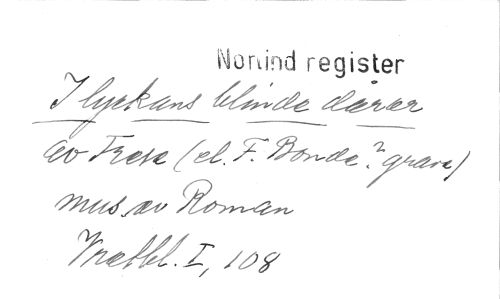 Nonind register
I lyckans blinde dårar
av Frese (el. F. Bonde? grave)
mus. av Roman
Vratbl. I, 108